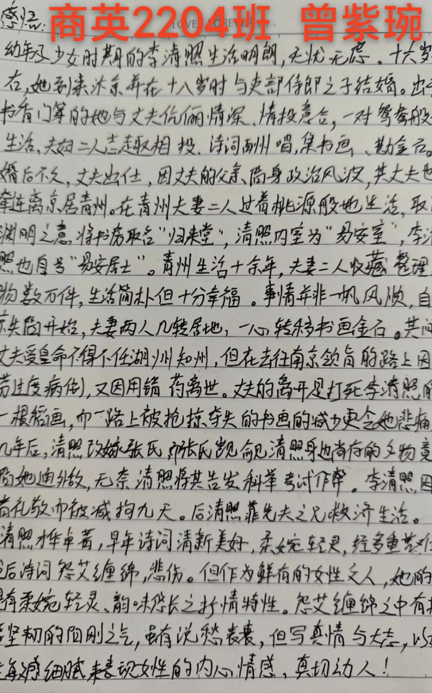 商英2204班 曾紫琬
LOVE FOREVER
幼年及少女时期的李清照生活明朗,无忧无虑。十六岁
右,她到来汴京并在十八岁时与吏部侍郎之子结婚。出
书香门第的她与丈夫伉俪情深、情投意合,一对鸳鸯般
生活,夫妇二人志趣相投、诗词酬唱,集书画、勘金石。
婚后不久,丈夫出仕,因丈夫的父亲陷身政治风波,其丈夫也
牵连离京居青州。在青州夫妻二人过着桃源般地生活,取
渊明之意,将书房取名"归来堂",清照内室为"易安室",李
照也自号"易安居士"。青州生活十余年,夫妻二人收藏整理
物数万件,生活简朴但十分幸福。事情并非一帆风顺,自
失陷开始,夫妻两人几转居地,一心转移书画金石。其间
丈夫受皇命不得不任湖州知州,但在去往南京领旨的路上因
劳过度病倒,又因用错药离世。丈夫的离开是打死李清照的
一根稻画,而一路上被抢掠夺失的书画的减少更令她悲痛
几年后,清照改嫁张氏,那张氏觊觎清照身边尚存的文物竟
她迪外敌,无奈清照将其告发科举考试作弊。李清照因
礼敬而被减拘九天。后清照靠先夫之兄救济生活。
清照才华卓著,早年诗词清新美好,柔婉轻灵,经多重苦
后诗词怨艾缠绵,悲伤。但作为鲜有的女性文人,她的
有柔婉轻灵、韵味悠长之抒情特性。怨艾缠绵之中有
坚韧的阳刚之气,虽有说愁表衰,但写真情与大志,以
细腻来表现女性的内心情感,真切动人!